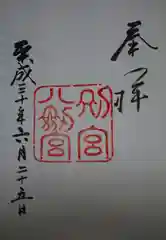 奉拝
八幡
別宮
平成三十年六月二十五日